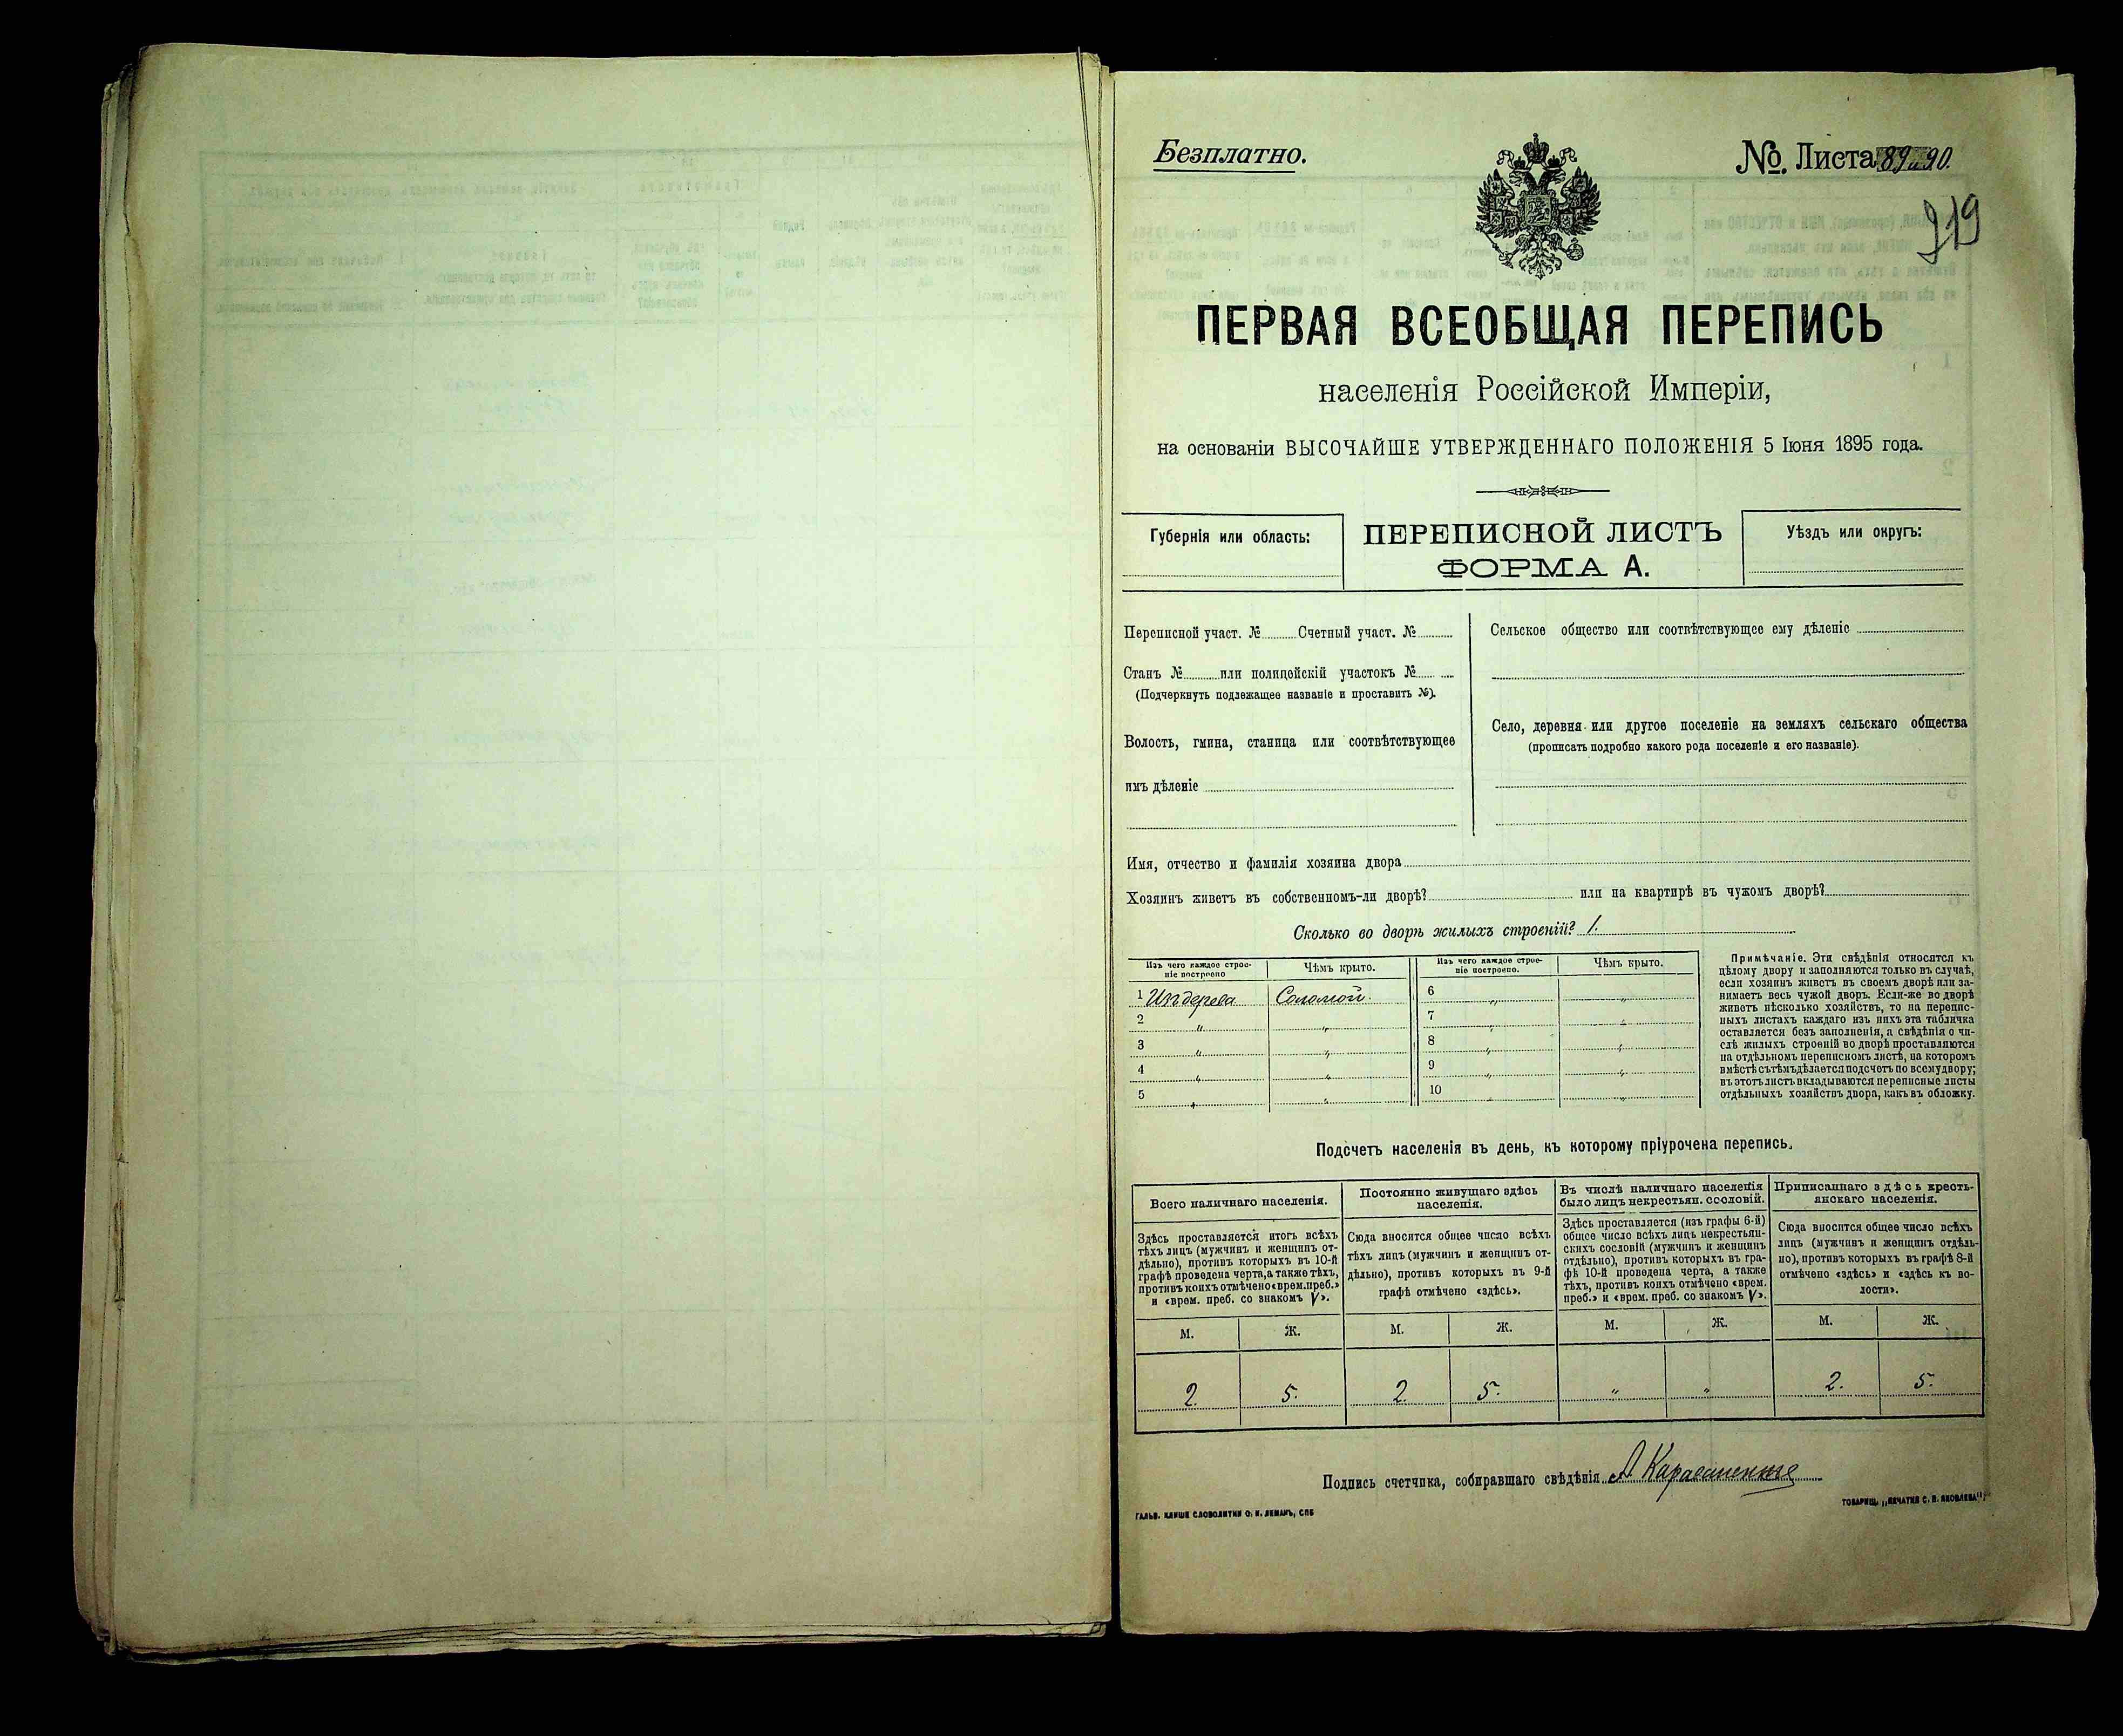 Безплатно.
№. Листа 89 и 90.
219
ПЕРВАЯ ВСЕОБЩАЯ ПЕРЕПИСЬ
населенія Россійской Имперіи,
на основаніи ВЫСОЧАЙШЕ УТВЕРЖДЕННАГО ПОЛОЖЕНІЯ 5 Іюня 1895 года.
Губернія или область:
ПЕРЕПИСНОЙ ЛИСТЪ
ФОРМА А.
Уѣздъ или округъ:
Переписной участ. № Счетный участ. №
Станъ № или полицейскій участокъ №
(Подчеркнуть подлежащее названіе и проставить №).
Волость, гмина, станица или соотвѣтствующее
имъ дѣленіе
Сельское общество или соотвѣтствующее ему дѣленіе
Село, деревня или другое поселеніе на земляхъ сельскаго общества
(прописать подробно какого рода поселеніе и его названіе).
Имя, отчество и фамилія хозяина двора
Хозяинъ живетъ въ собственномъ-ли дворѣ? или на квартирѣ въ чужомъ дворѣ?
Сколько во дворѣ жилыхъ строеній? 1.
Изъ чего каждое строе-
ніе построено
Чѣмъ крыто.
Изъ чего каждое строе-
ніе построено.
Чѣмъ крыто.
1 Из дерева Соломой. 6 " "
2 " " 7 " "
3 " " 8 " "
4 " " 9 " "
5 " " 10 " "
Примѣчаніе. Эти свѣдѣнія относятся къ
цѣлому двору и заполняются только въ случаѣ,
если хозяинъ живетъ въ своемъ дворѣ или за-
нимаетъ весь чужой дворъ. Если-же во дворѣ
живетъ нѣсколько хозяйствъ, то на перепис-
ныхъ листахъ каждаго изъ нихъ эта табличка
оставляется безъ заполненія, а свѣдѣнія о чи-
слѣ жилыхъ строеній во дворѣ проставляются
на отдѣльномъ переписномъ листѣ, на которомъ
вмѣстѣ съ тѣмъ дѣлается подсчетъ по всему двору;
въ этотъ листъ вкладываются переписные листы
отдѣльныхъ хозяйствъ двора, какъ въ обложку.
Подсчетъ населенія въ день, къ которому пріурочена перепись.
Всего наличнаго населенія.
Здѣсь проставляется итогъ всѣхъ
тѣхъ лицъ (мужчинъ и женщинъ от-
дѣльно), противъ которыхъ въ 10-й
графѣ проведена черта, а также тѣхъ,
противъ коихъ отмѣчено «врем. преб.»
и «врем. преб. со знакомъ V».
Постоянно живущаго здѣсь
населенія.
Сюда вносится общее число всѣхъ
тѣхъ лицъ (мужчинъ и женщинъ от-
дѣльно), противъ которыхъ въ 9-й
графѣ отмѣчено «здѣсь».
Въ числѣ наличнаго населенія
было лицъ некрестьян. сословій.
Здѣсь проставляется (изъ графы 6-й)
общее число всѣхъ лицъ некрестьян-
скихъ сословій (мужчинъ и женщинъ
отдѣльно), противъ которыхъ въ гра-
фѣ 10-й проведена черта, а также
тѣхъ, противъ коихъ отмѣчено «врем.
преб.» и «врем. преб. со знакомъ V».
Приписаннаго здѣсь кресть-
янскаго населенія.
Сюда вносится общее число всѣхъ
лицъ (мужчинъ и женщинъ отдѣль-
но), противъ которыхъ въ графѣ 8-й
отмѣчено «здѣсь» и «здѣсь къ во-
лости».
М. Ж. М. Ж. М. Ж. М. Ж.
2. 5. 2. 5. " " 2. 5.
Подпись счетчика, собиравшаго свѣдѣнія
ГАЛЬВ. КЛИШЕ СЛОВОЛИТНИ О. И. ЛЕМАНЪ, СПБ
ТОВАРИЩ. „ПЕЧАТНЯ С. П. ЯКОВЛЕВА"